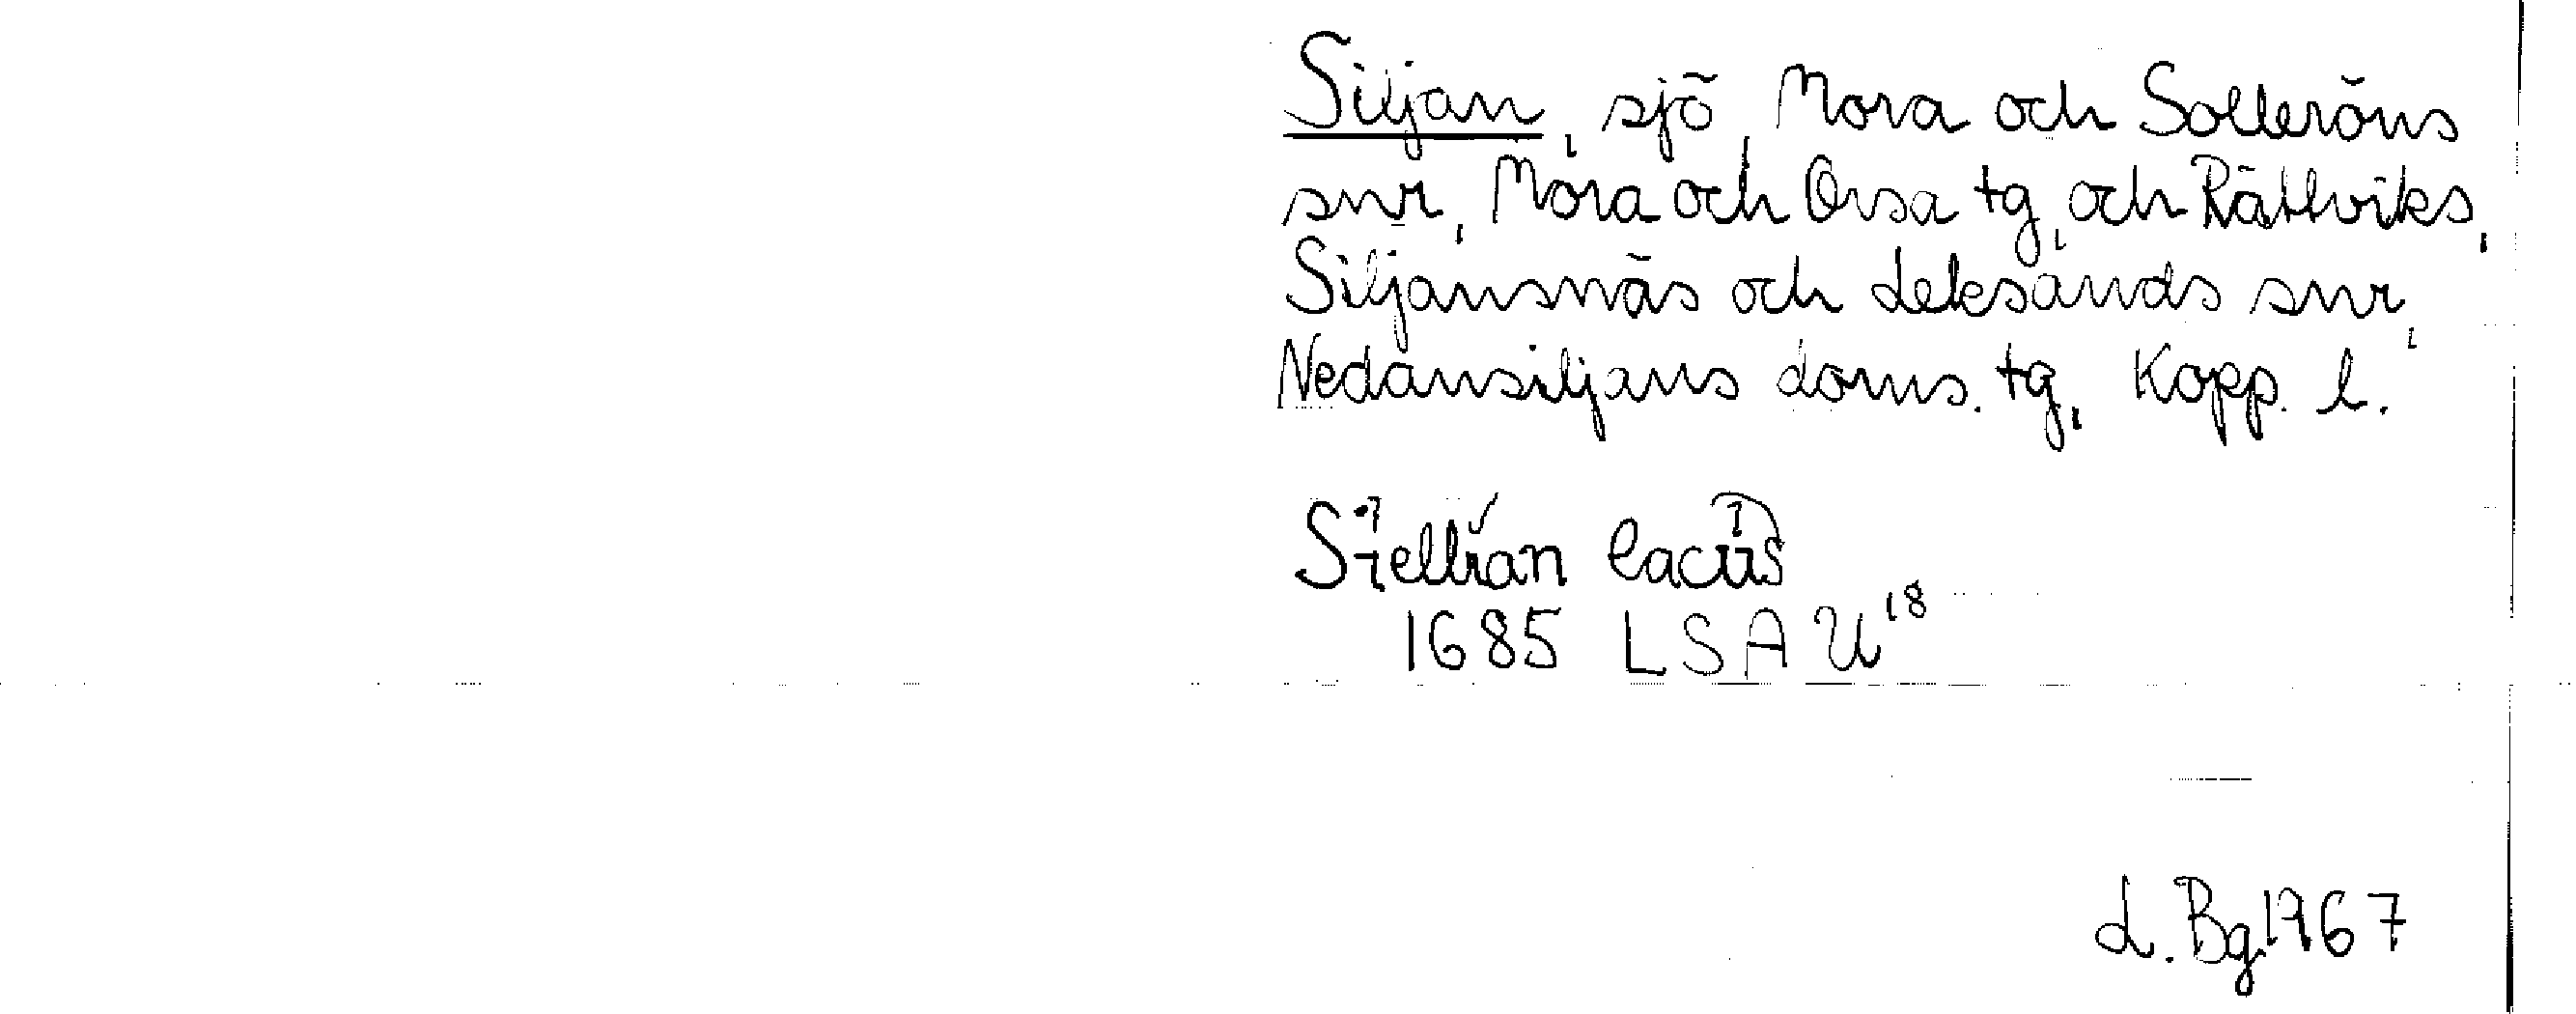 Siljan, sjö, Mora och Solleröns
snr, Mora och Orsa tg, och Rättviks,
Siljansnäs och Leksands snr,
Nedansiljans doms. tg, Kopp. l.
Siellian lacus
1685 LSA U18
L. Bg. 1967